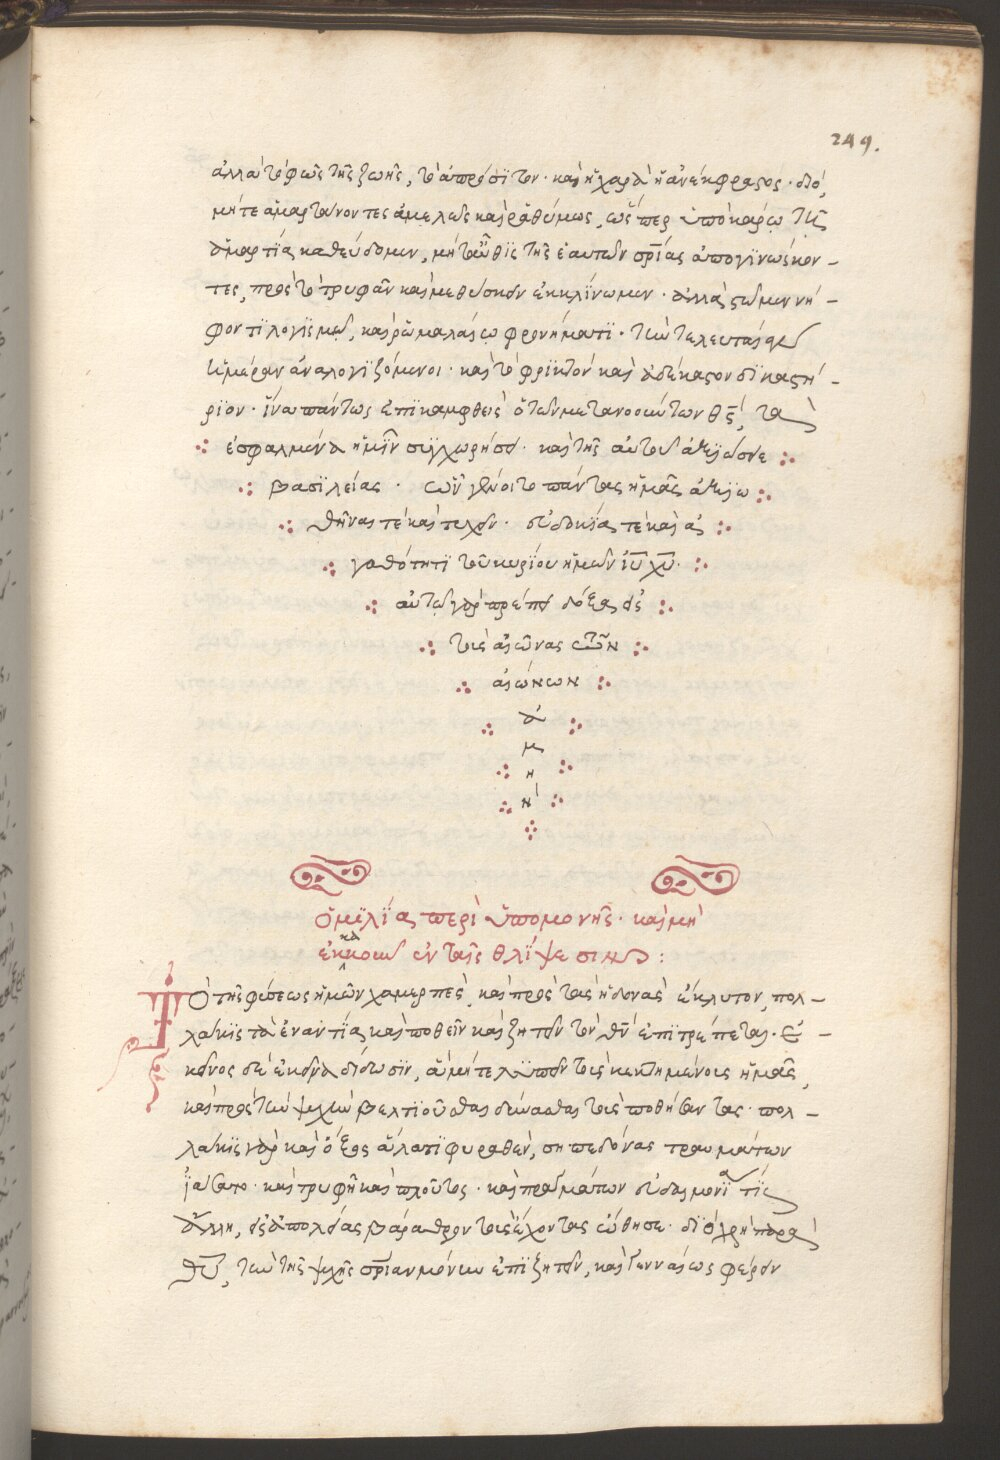 249.
ἀλλὰ τὸ φῶς τῆς ζωῆς, τὸ ἀπρόσϊτον· καὶ ἡ χαρὰ ἡ ἀνέκφραστος· διό,
μήτε ἁμαρτάνοντες ἀμελῶς καὶ ῥαθύμως, ὥσπερ ὑπὸ κάρῳ τῆς
ἁμαρτίας καθεύδομεν, μήτ' αὖθις τῆς ἑαυτῶν σρίας ἀπογινώσκον-
τες, πρὸς τὸ τρυφᾶν καὶ μεθύσκειν ἐκκλίνωμεν· ἀλλὰ ζῶμεν νή-
φοντϊ λογϊσμῷ, καὶ ῥωμαλαίῳ φρονήματϊ· τὴν τελευταίαν
ἡμέραν ἀναλογϊζόμενοι· καὶ τὸ φρϊκτὸν καὶ ἀδέκαστον δϊκαστή-
ρϊον· ἵνα πάντως ἐπϊκαμφθεὶς ὁ τῶν μετανοούντων θς, τὰ
ἐσφαλμένα ἡμῖν συγχωρήσει· καὶ τῆς αὐτοῦ ἀξιώσειε
βασϊλείας · ὧν γένοιτο πάντας ἡμᾶς ἀξϊω
θῆναί τε καὶ τυχεῖν· εὐδοκίᾳ τε καὶ ἀ
γαθότητϊ τοῦ κυρϊου ἡμῶν ἰυ χυ·
αὐτῷ γὰρ πρέπει δόξα εἰ
τοὺς αἰῶνας τῶν
αἰώνων
ἀ
μ
η
ν
ὁμϊλϊα περὶ ὑπομονῆς· καὶ μὴ
ἐκκακεῖν ἐν ταῖς θλϊψεσιν:
Τὸ τῆς φύσεως ἡμῶν χαμερπὲς καὶ πρὸς τὰς ἡδονὰς ἔκλυτον, πολ-
λάκϊς τὰ ἐναντία καὶ ποθεῖν καὶ ζητεῖν τὸν θν ἐπϊτρέπεται· ἐ-
κεῖνος δὲ ἐκεῖνα δίδωσϊν, ἃ μήτε λυπεῖν τοὺς κεκτημένους ἡμᾶς,
καὶ πρὸς τὴν ψυχὴν βελτϊοῦσθαι δύνασθαι τοὺς ποθήσαντας· πολ-
λάκϊς γὰρ καὶ ὄξος ἅλατϊ φυραθὲν, σηπεδόνας τραυμάτων
ἰάσατο· καὶ τρυφὴ καὶ πλοῦτος· καὶ πραγμάτων εὐδαιμονϊα τϊς
ἄλλη, εἰς ἀπωλείας βάραθρον τοὺς ἔχοντας ὤθησε· δϊὸ χρὴ παρὰ
θυ, τὴν τῆς ψυχῆς σρίαν μόνην ἐπϊζητεῖν, καὶ γενναίως φέρειν